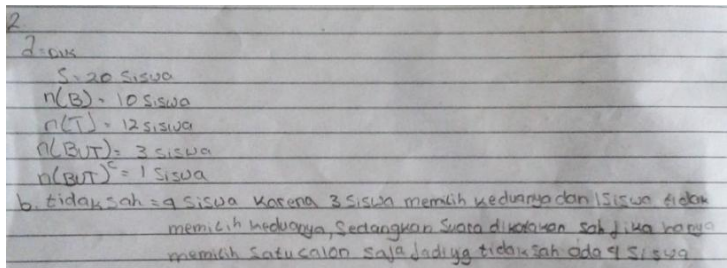 2.
a. Dik
S = 20 siswa
n(B) = 10 siswa
n(T) = 12 siswa
n(BUT) = 3 siswa
n(BUT)ᶜ = 1 siswa
b. tidak sah = 4 siswa karena 3 siswa memilih keduanya dan 1 siswa tidak
memilih keduanya, Sedangkan Suara dikatakan sah jika hanya
memilih satu calon saja Jadi yg tidak sah ada 4 siswa